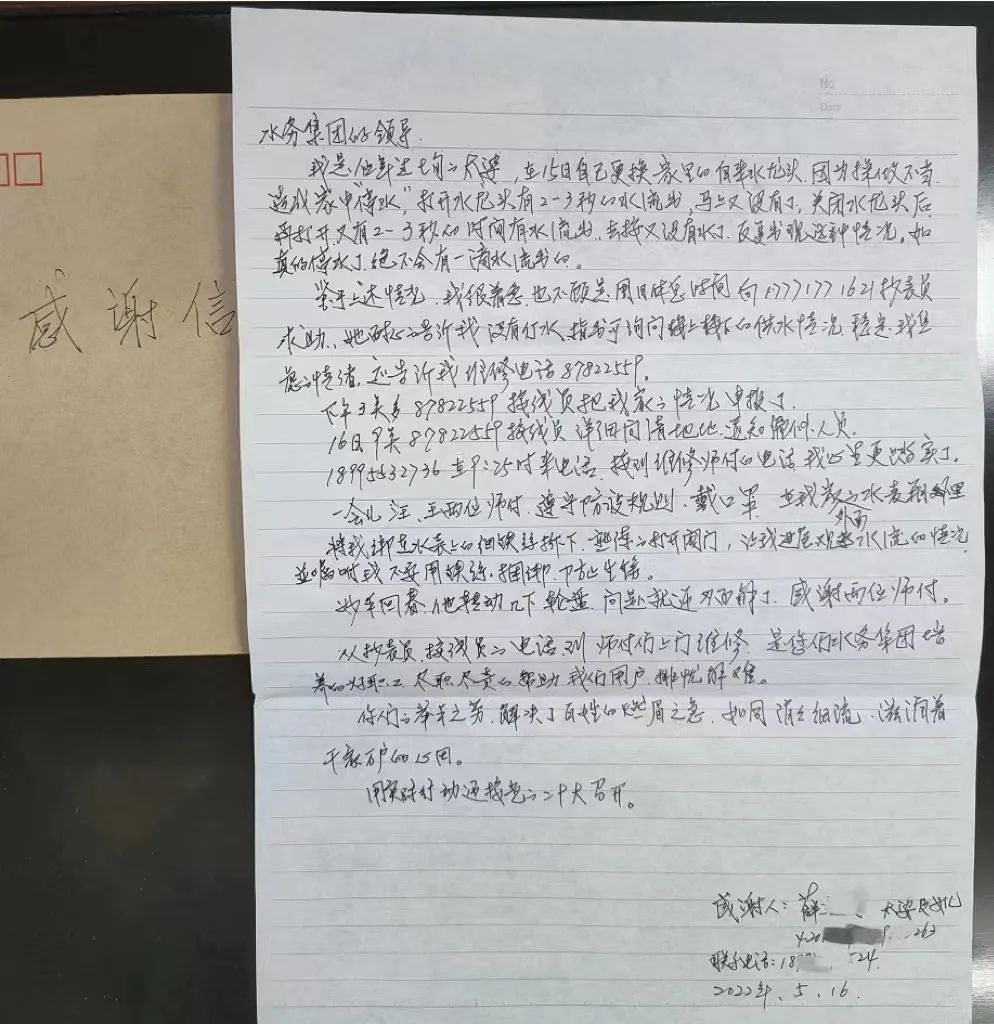 感谢信
No.
Date
水务集团的领导.
我是位年过七旬的太婆，在15日自己更换家里的自来水龙头，因为操做不当
造成家中“停水”，打开水龙头有2-3秒的水流出，马上又没有了，关闭水龙头后
再打开又有2-3秒的时间有水流出，去接又没有水了，反复出现这种情况。如
真的停水了绝不会有一滴水流出的。
鉴于上述情况，我很着急，也不顾是周日休息时间向17771771621抄表员
求助，她耐心的告诉我没有停水，指出可询问楼上楼下的供水情况，稳定我焦
急的情绪，还告诉我维修电话87822559。
下午3点多87822559接线员把我家的情况申报了.
16日9点87822559接线员详细问清地址，通知维修人员.
18995532736在9:25时来电话，接到维修师付的电话我心里更踏实了。
一会儿汪、王两位师付，遵守防设规则，戴口罩，在我家的水表外面
将我绑在水表上的细铁丝拆下，熟练的打开阀门，让我进屋观察水流的情况
并嘱咐我不要用铁丝捆绑，防止生锈。
妙手回春，他转动几下轮盘，问题就迎刃而解了，感谢两位师付。
从抄表员、接线员的电话，到师付们上门维修，是您们水务集团培
养的好职工，尽职尽责的帮助我们用户排忧解难。
你们的举手之劳，解决了百姓的燃眉之急，如同涓涓细流，滋润着
千家万户的心田。
用实际行动迎接党的二十大召开。
感谢人：薛 太婆
420 263
联系电话：18 24.
2022年.5.16.